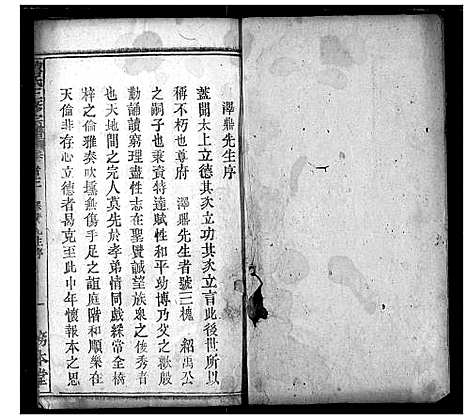 澤鼎先生序
蓋聞太上立德其次立功其次立言此後世所以
稱不朽也尊府　澤鼎先生者號三槐　紹禹公
之嗣子也秉資特達賦性和平功博乃父之歡殷
勤誦讀窮理盡性志在聖賢誠望族泉之俊秀者
也大地間之完人莫先於孝弟情同戲綵常全橋
梓之倫雅奏吹壎無傷手足之誼庭階和順樂在
天倫非存心立德者曷克至此中年懷報本之思
卷首三
生序
一
務本堂